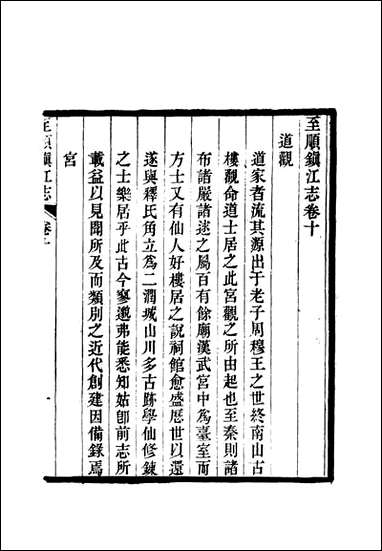 至順鎮江志卷十
道觀
道家者流其源出于老子周穆王之世終南山古
樓觀命道士居之此宮觀之所由起也至秦則諸
布諸嚴諸逑之屬百有餘廟漢武宮中爲臺室而
方士又有仙人好樓居之說祠館愈盛厯世以還
遂與釋氏角立爲二潤城山川多古跡學仙修鍊
之士樂居乎此古今寥邈弗能悉知姑卽前志所
載益以見聞所及而類別之近代創建因備錄焉
宮
至順鎮江志 卷十